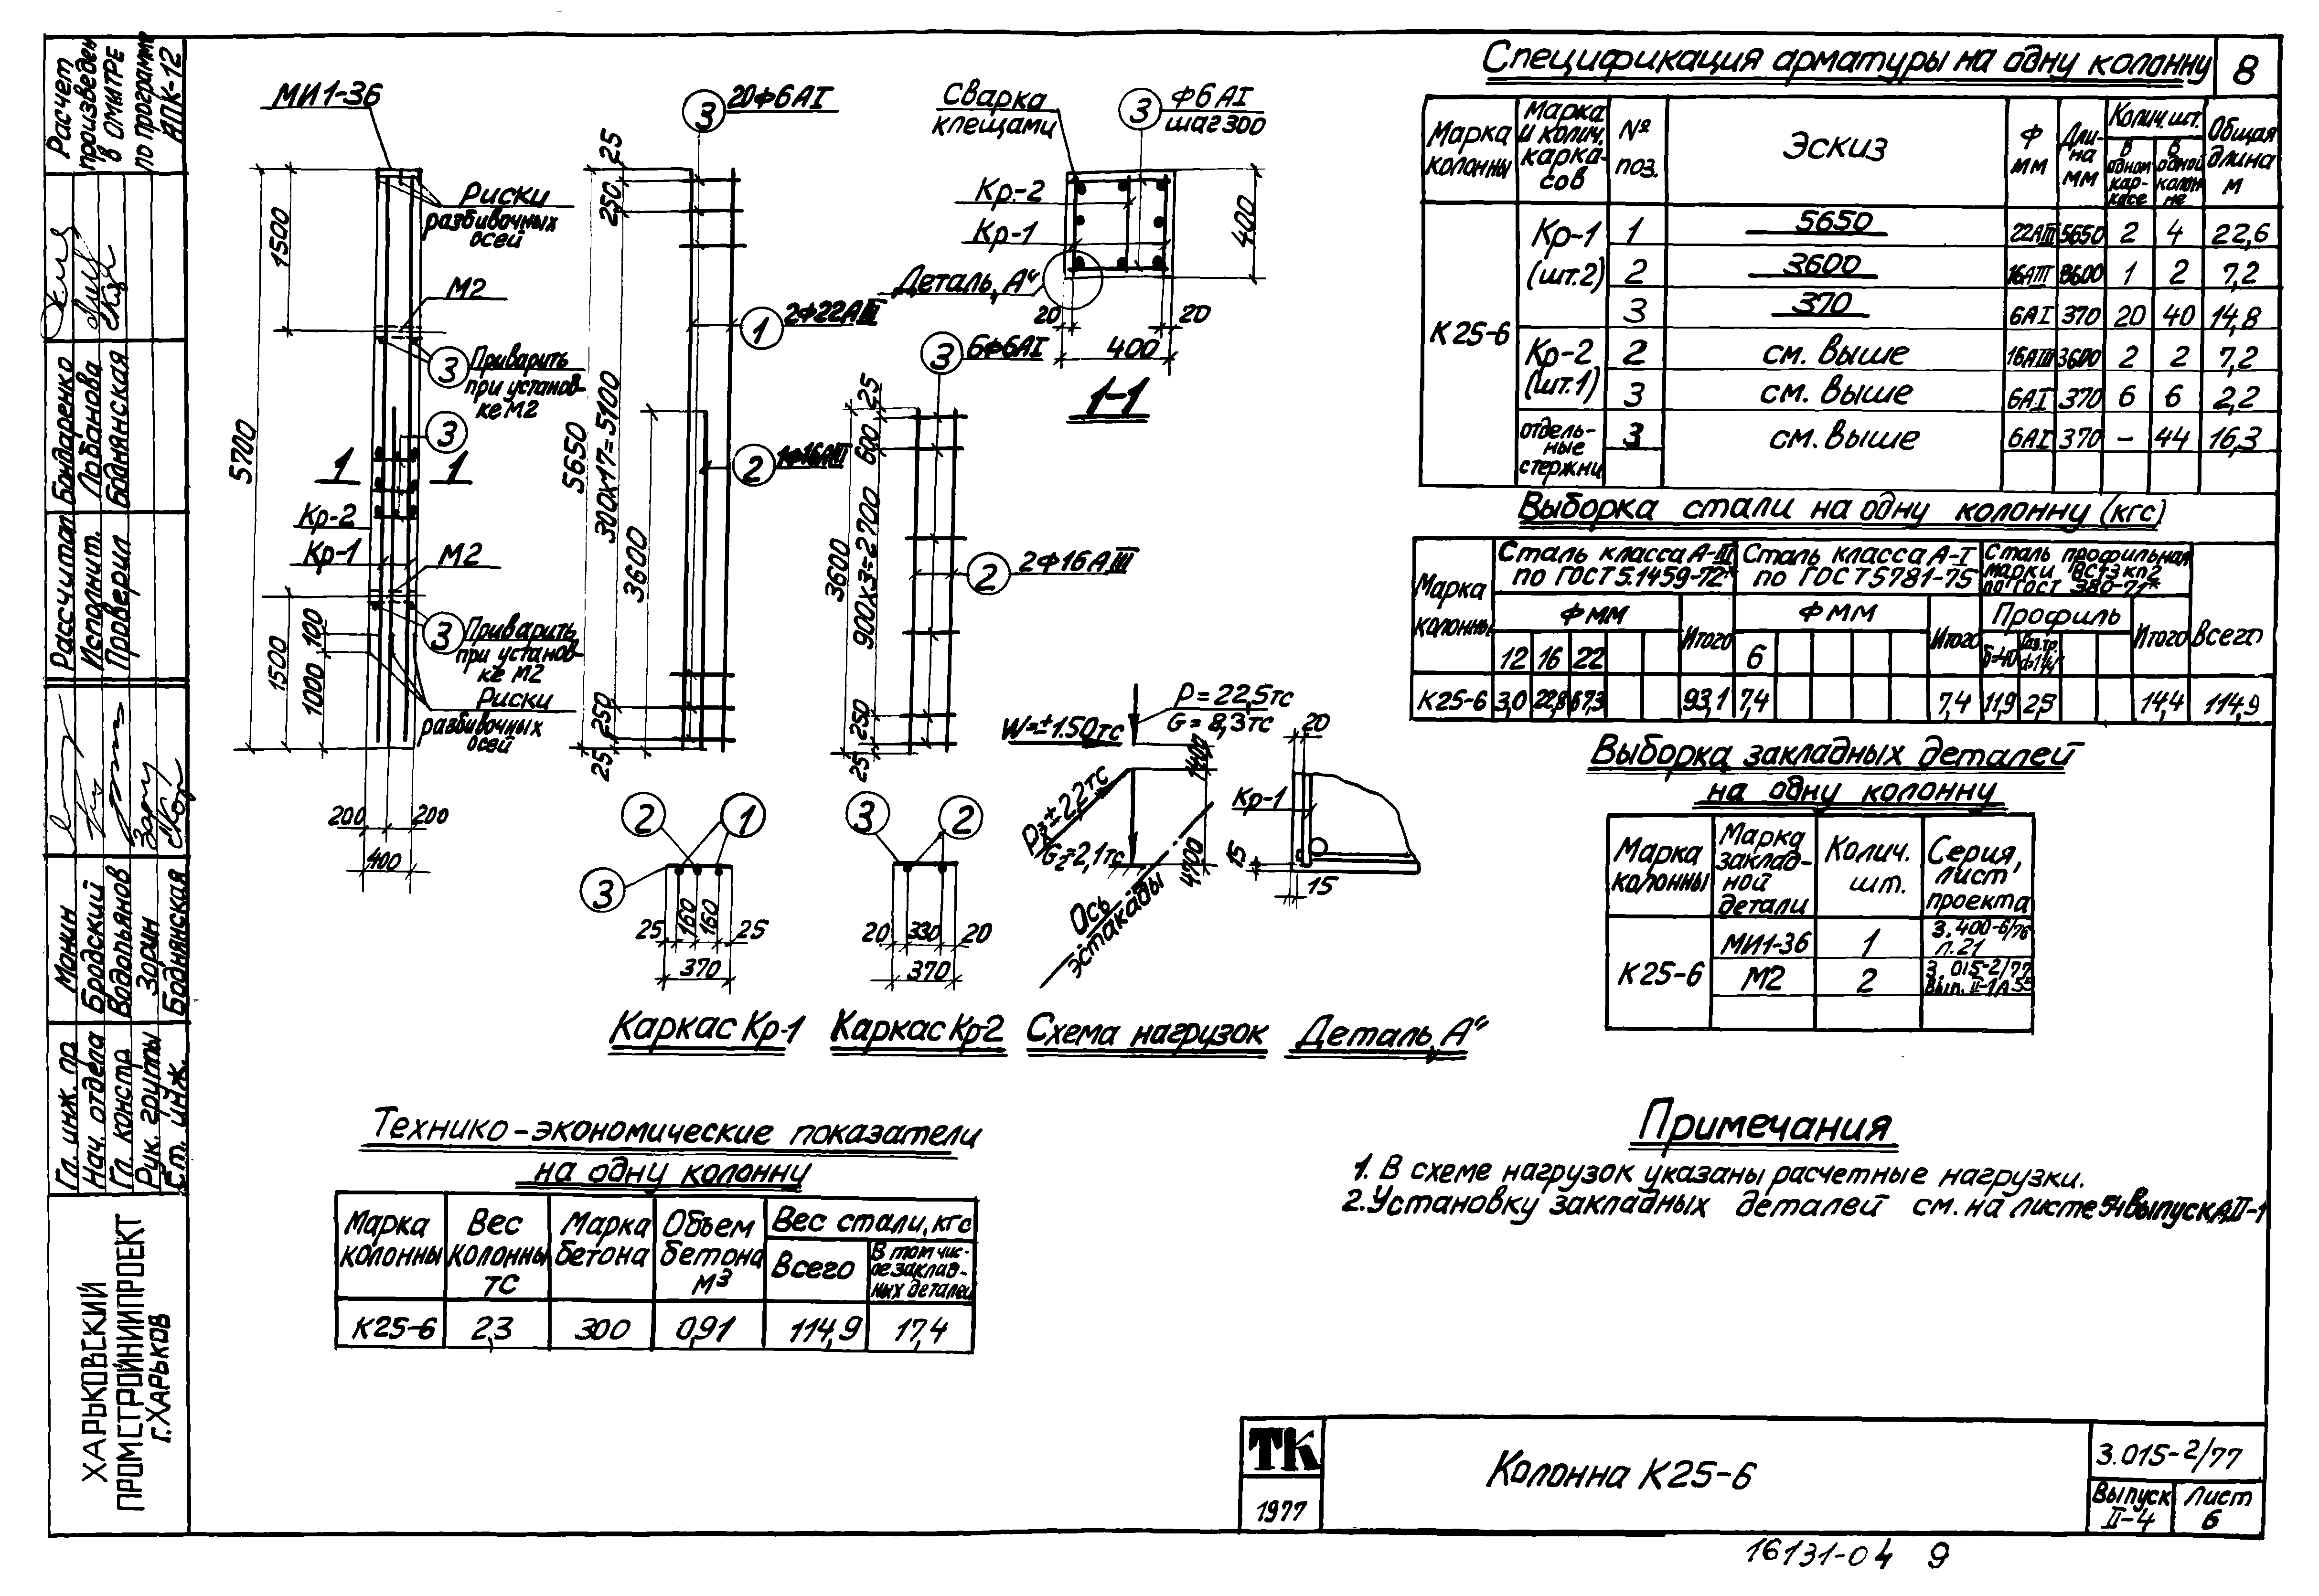 Спецификация арматуры на одну колонну
8
Марка колонны
Марка и колич. каркасов
№ поз.
Эскиз
Ф мм
Длина мм
Колич. шт.
В одном каркасе
В одной колонне
Общая длина м
К25-6
Кр-1 (шт.2)
1 5650 22АIII 5650 2 4 22,6
2 3600 16АIII 3600 1 2 7,2
3 370 6АI 370 20 40 14,8
Кр-2 (шт.1)
2 см. выше 16АIII 3600 2 2 7,2
3 см. выше 6АI 370 6 6 2,2
отдельные стержни
3 см. выше 6АI 370 - 44 16,3
Выборка стали на одну колонну (кгс)
Марка колонны
Сталь класса А-III по ГОСТ 5.1459-72*
Сталь класса А-I по ГОСТ 5781-75
Сталь профильная марки ВСт3кп2 по ГОСТ 380-71*
Всего
Ф мм
Итого
Ф мм
Итого
Профиль
Итого
12 16 22 6 δ=40
К25-6 3,0 22,8 67,3 93,1 7,4 7,4 11,9 2,5 14,4 114,9
Выборка закладных деталей
на одну колонну
Марка колонны
Марка закладной детали
Колич. шт.
Серия, лист проекта
К25-6
МИ1-36 1 3.400-6/76 л.21
М2 2 3.015-2/77 Вып. II-1 л 55
МИ1-36
Риски
разбивочных
осей
5700
1500
М2
3
Приварить
при установ-
ке М2
3
1 1
Кр-2
Кр-1
М2
3
Приварить
при установ-
ке М2
1500
1000
100
Риски
разбивочных
осей
200 200
400
3 20Ф6АI
25
250
5650
300х17=5100
3600
1 2Ф22АIII
2 1Ф16АIII
250
25
2 1
3
25 160 160 25
370
Каркас Кр-1
3 6Ф6АI
25
600
3600
900х3=2700
2 2Ф16АIII
250
25
3 2
20 330 20
370
Каркас Кр-2
Сварка
клещами
3 Ф6АI
шаг300
Кр-2
Кр-1
Деталь„А“
400
20 20
400
1-1
P=22,5тс
G=8,3тс
W=±1.50тс
±2,2тс
G₂=2,1тс
4700
Ось
эстакады
Схема нагрузок
20
Кр-1
15
15
Деталь„А“
Технико-экономические показатели
на одну колонну
Марка колонны
Вес колонны тс
Марка бетона
Объем бетона м3
Вес стали, кгс
Всего
В том числе закладных деталей
К25-6 2,3 300 0,91 114,9 17,4
Примечания
1. В схеме нагрузок указаны расчетные нагрузки.
2. Установку закладных деталей см. на листе 54 выпуска II-1
Расчет
произведен
в ОМАТРЕ
по программе
АПК-12
Рассчитал Бондаренко
Исполнит. Лобанова
Проверил Боднянская
Гл. инж. пр. Монин
Нач. отдела Бродский
Гл. констр Водопьянов
Рук. группы Зорин
Ст. инж. Боднянская
ХАРЬКОВСКИЙ
ПРОМСТРОЙНИИПРОЕКТ
Г.ХАРЬКОВ
ТК
1977
Колонна К25-6
3.015-2/77
Выпуск II-4
Лист 6
16131-04 9